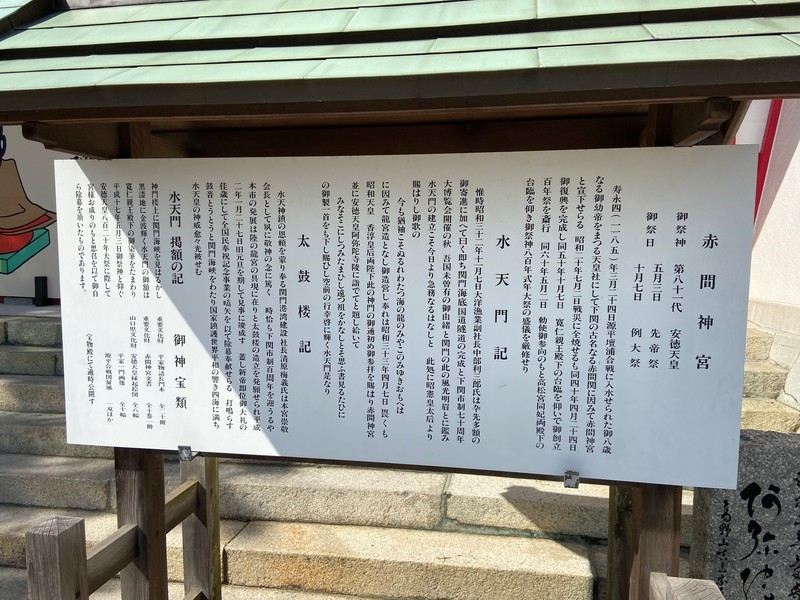 赤間神宮
御祭神 第八十一代 安徳天皇
御祭日 五月三日 先帝祭
十月七日 例大祭
寿永四(一一八五)年三月二十四日源平壇浦合戦に入水せられた御八歳
なる御幼帝をまつる天皇社にして下関の古名なる赤間関に因みて赤間神宮
と宣下せらる 昭和二十年七月二日戦災に全焼せるも同四十年四月二十四日
御復興を完成し同五十年十月七日 寛仁親王殿下の台臨を仰いで御創立
百年祭を斎行 同六十年五月二日 勅使御参向のもと高松宮同妃両殿下の
台臨を仰ぎ御祭神八百年式年大祭の盛儀を厳修せり
水天門記
惟時昭和三十二年十一月七日大洋漁業副社長中部利三郎氏は夲先多額の
御寄進に加へて曰く即今関門海底国道隧道の完成と下関市制七十周年
大博覧会開催の秋 吾国未曽有の御由緒と関門の此の風光明眉とに鑑み
水天門の建立こそ今日より急務なるはなしと 此処に昭憲皇太后より
賜はりし御歌の
今も猶袖こそぬるれわたつ海の龍のみやこのみゆきおもへは
に因みて龍宮造となし御造営し奉れは昭和三十三年四月七日 畏くも
昭和天皇 香淳皇后両陛下此の神門の御通初め御参拝を賜はり赤間神宮
並に安徳天皇阿弥陀寺陵に詣でてと題し給いて
みなそこにしつみたまひし遠つ祖をかなしとそ思ふ書見るたひに
の御製一首をも下し賜ひし空前の行幸啓に輝く水天門是なり
太鼓楼記
水天神鎮の恩頼を蒙り奉る関門港湾建設 社長清原梅義氏は本宮崇敬
会長として夙に敬神の念に篤く 時恰も下関市制百周年を迎うるや
本市の発展は陸の龍宮の具現に在りと太鼓楼の造立を発願せられ平成
二年一月二十七日旧元旦を期して見事に竣成す 蓋し新帝即位御大礼の
佳歳にして全国民奉祝記念事業の嚆矢を以て除幕奉献せらる 打鳴らす
鼓音とうとうと関門海峡をわたり国家鎮護世界平和の響き四海に満ち
水天皇の神威愈々光被せむ
水天門 掲額の記
神門楼上に関門海峡を見はるかし
黒漆地に金波輝く水天門の御額は
寛仁親王殿下の御染筆をたまわり
平成十七年五月三日御祭神と仰ぐ
安徳天皇八百二十年大祭に際して
宮様お成りのもと思召を以て御自
ら除幕を頂いたものであります。
御神宝類
重要文化財 平家物語長門本 全二十冊
重要文化財 赤間神宮文書 全十巻一冊
山口県文化財 安徳天皇縁起絵図 全八幅
平家一門画像 全十幅
源平合戦図屏風 一双ほか
宝物殿にて適時公開す